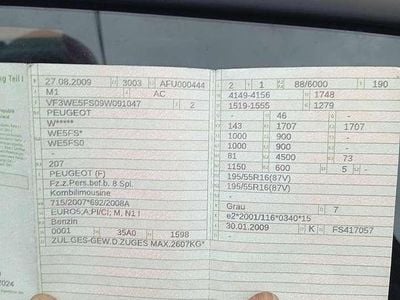 ng Teil I
27.08.2009 3003 AFU000444
M1 AC
VF3WE5FS09W091047 2
PEUGEOT
W*****
WE5FS*
WE5FS0
-
207
PEUGEOT (F)
Fz.z.Pers.bef.b. 8 Spl.
Kombilimousine
715/2007*692/2008A
EURO5;A;PI/CI; M, N1 I
Benzin
0001 35A0 1598
ZUL.GES-GEW.D.ZUGES MAX.2607KG*
2 1 88/6000 190
4149-4156 1748
1519-1555 1279
- 46 - -
143 1707 1707
1000 900 -
1000 900 -
81 4500 73
1150 600 5 -
195/55R16(87V)
195/55R16(87V)
-
Grau 7
e2*2001/116*0340*15
30.01.2009 K FS417057
-
2024